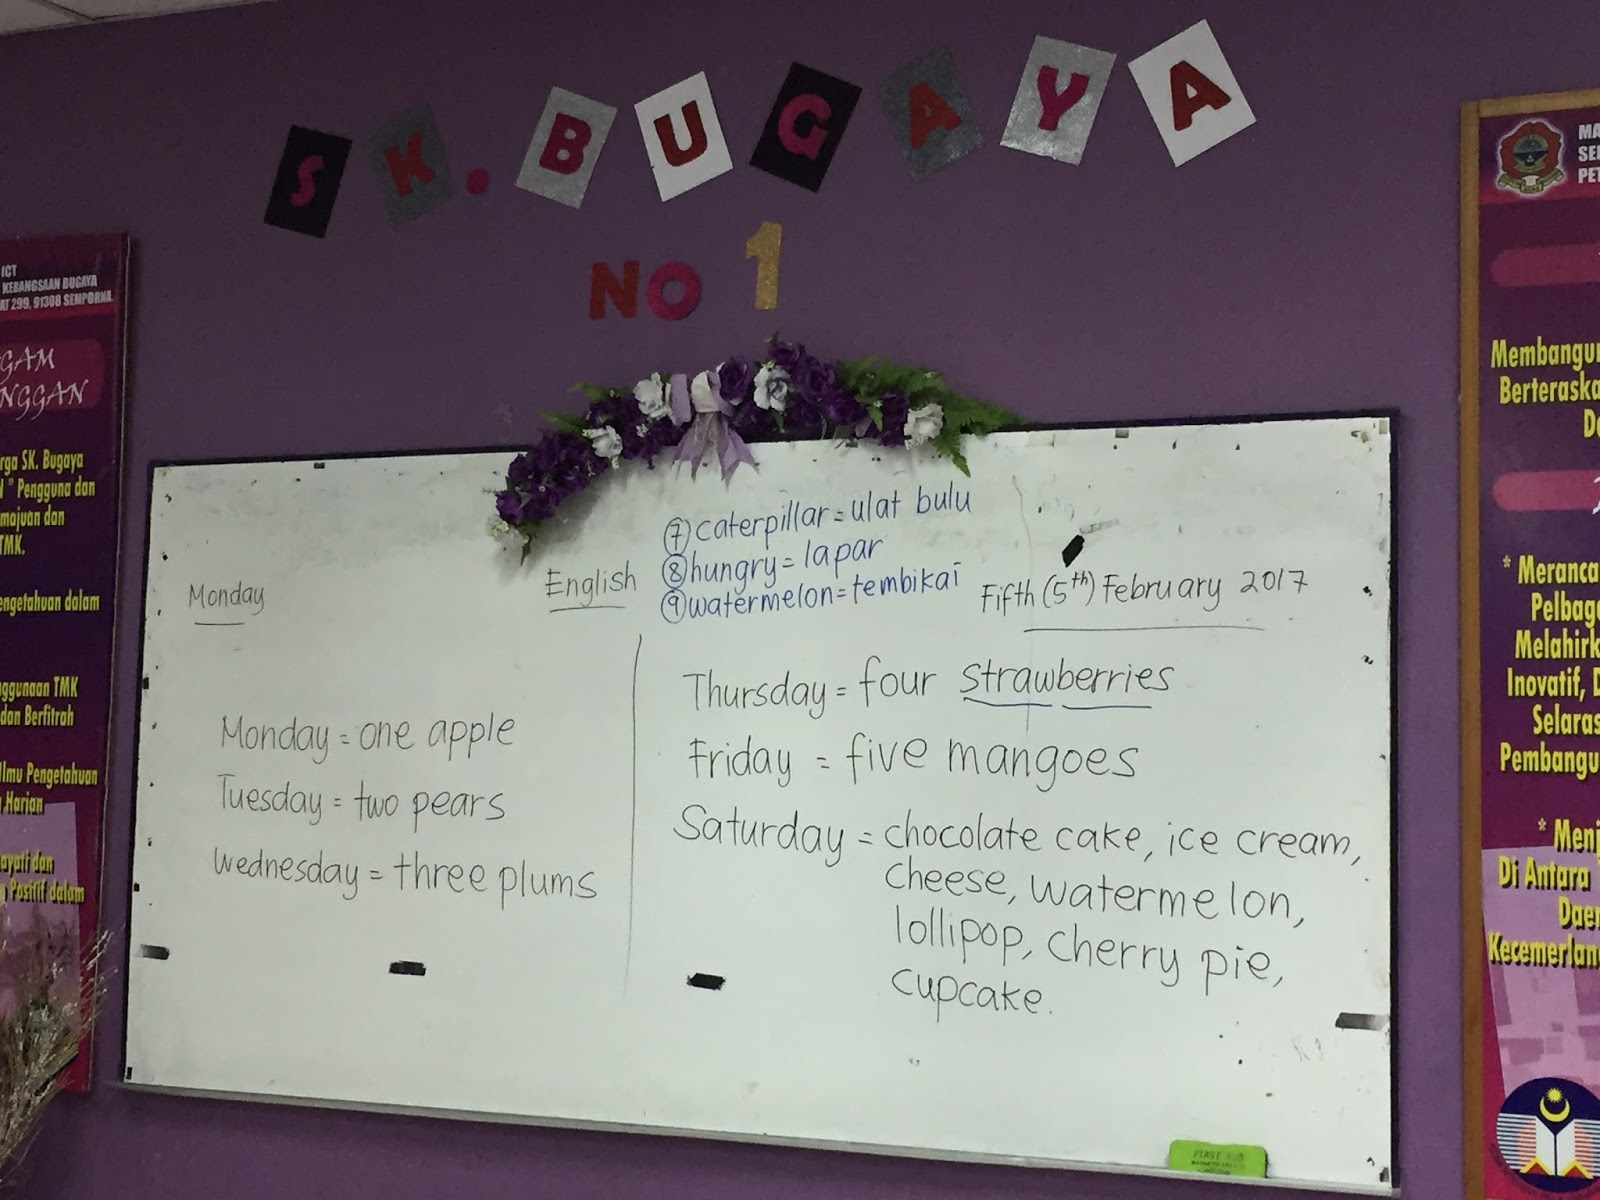 SK. BUGAYA
NO 1
ICT
KEBANGSAAN BUGAYA
299, 91308 SEMPORNA
GAM
NGGAN
rga SK. Bugaya
" Pengguna dan
majuan dan
TMK.
engetahuan dalam
nggunaan TMK
dan Berfitrah
Ilmu Pengetahuan
Harian
ayati dan
Positif dalam
Monday
English
⑦ caterpillar = ulat bulu
⑧ hungry = lapar
⑨ watermelon = tembikai
Fifth (5th) February 2017
Monday = one apple
Tuesday = two pears
Wednesday = three plums
Thursday = four strawberries
Friday = five mangoes
Saturday = chocolate cake, ice cream,
cheese, watermelon,
lollipop, cherry pie,
cupcake.
FIRST
MA
SE
PET
Membangu
Berteraska
Da
* Meranca
Pelbaga
Melahirk
Inovatif, D
Selaras
Pembangu
* Menj
Di Antara
Daer
Kecemerlan